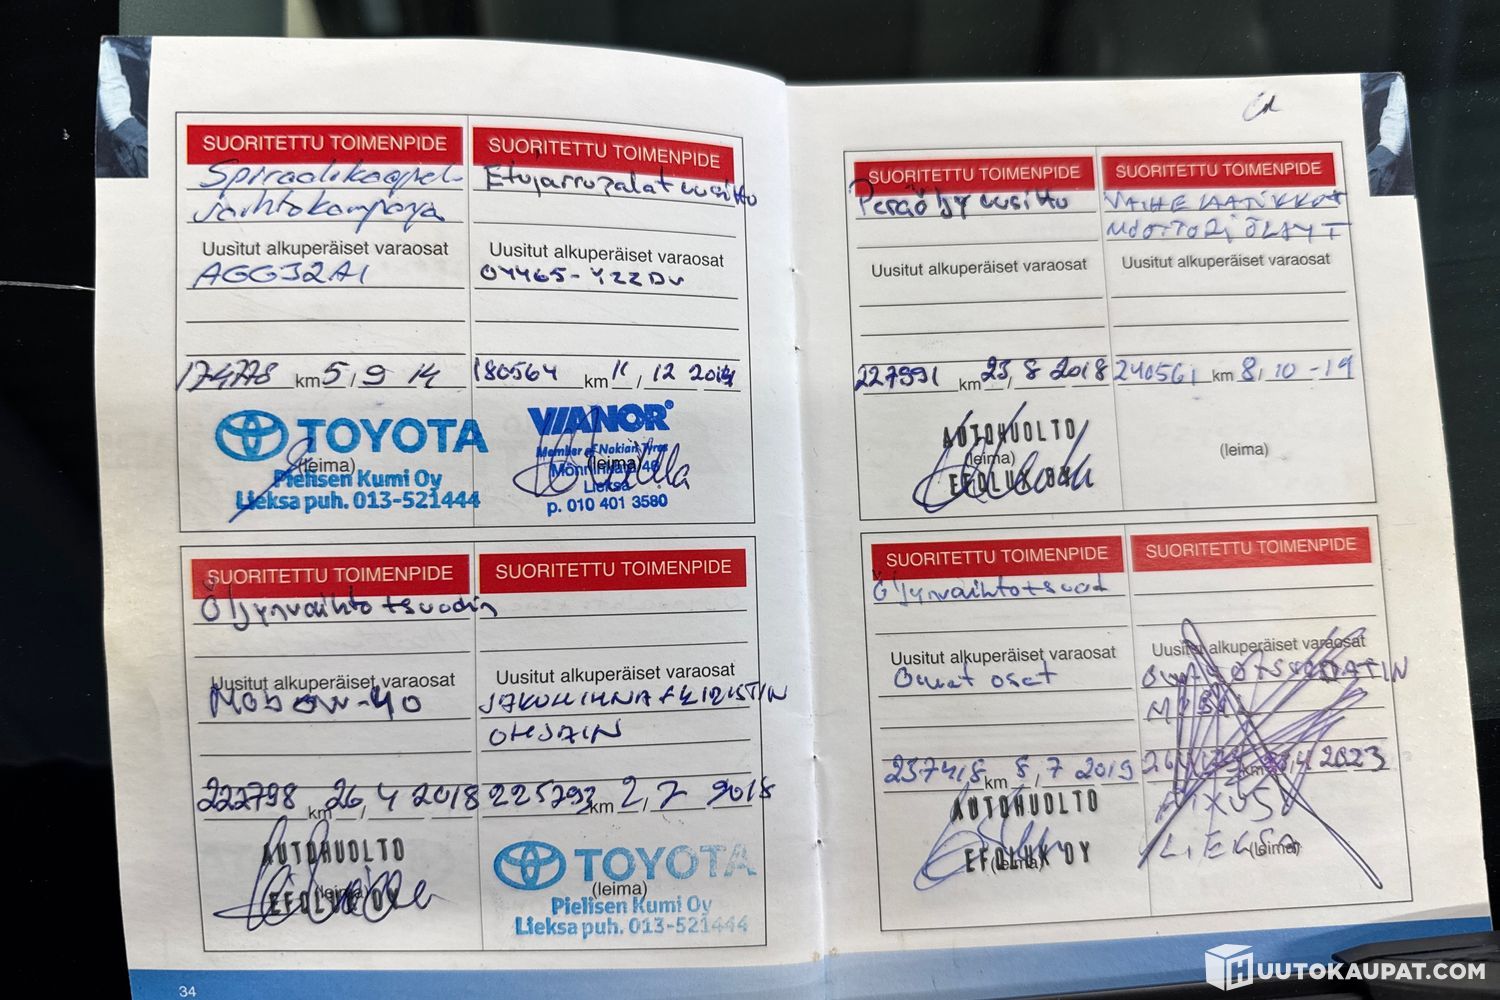 SUORITETTU TOIMENPIDE
Spiraalikaapel-
vaihtokampanja
Uusitut alkuperäiset varaosat
AGG32A1
174778 km 5,9 14
TOYOTA
(leima)
Pielisen Kumi Oy
Lieksa puh. 013-521444
SUORITETTU TOIMENPIDE
Etujarrupalat uusittu
Uusitut alkuperäiset varaosat
04465-YZZDV
180564 km 11 / 12 2014
VIANOR
Member of Nokian Tyres
(leima)
Lieksa
p. 010 401 3580
SUORITETTU TOIMENPIDE
Öljynvaihto+suodin
Uusitut alkuperäiset varaosat
222798 km 26,4 2018
AUTOHUOLTO
(leima)
EFOLUX OY
SUORITETTU TOIMENPIDE
Uusitut alkuperäiset varaosat
OHJAIN
225793 km 2,7 2018
TOYOTA
(leima)
Pielisen Kumi Oy
Lieksa puh. 013-521444
34
SUORITETTU TOIMENPIDE
Peräöljy uusittu
Uusitut alkuperäiset varaosat
227991 km 23,8 2018
AUTOHUOLTO
(leima)
EFOLUX OY
SUORITETTU TOIMENPIDE
VAIHELAATIKKO+
MOOTTORIÖLJYT
Uusitut alkuperäiset varaosat
240561 km 8,10 -19
(leima)
SUORITETTU TOIMENPIDE
Öljynvaihto+suod
Uusitut alkuperäiset varaosat
Omat osat
237418 km 8,7 2019
AUTOHUOLTO
(leima)
EFOLUX OY
SUORITETTU TOIMENPIDE
Uusitut alkuperäiset varaosat
km 2023
FIXUS
LIEKSA
(leima)
HUUTOKAUPAT.COM